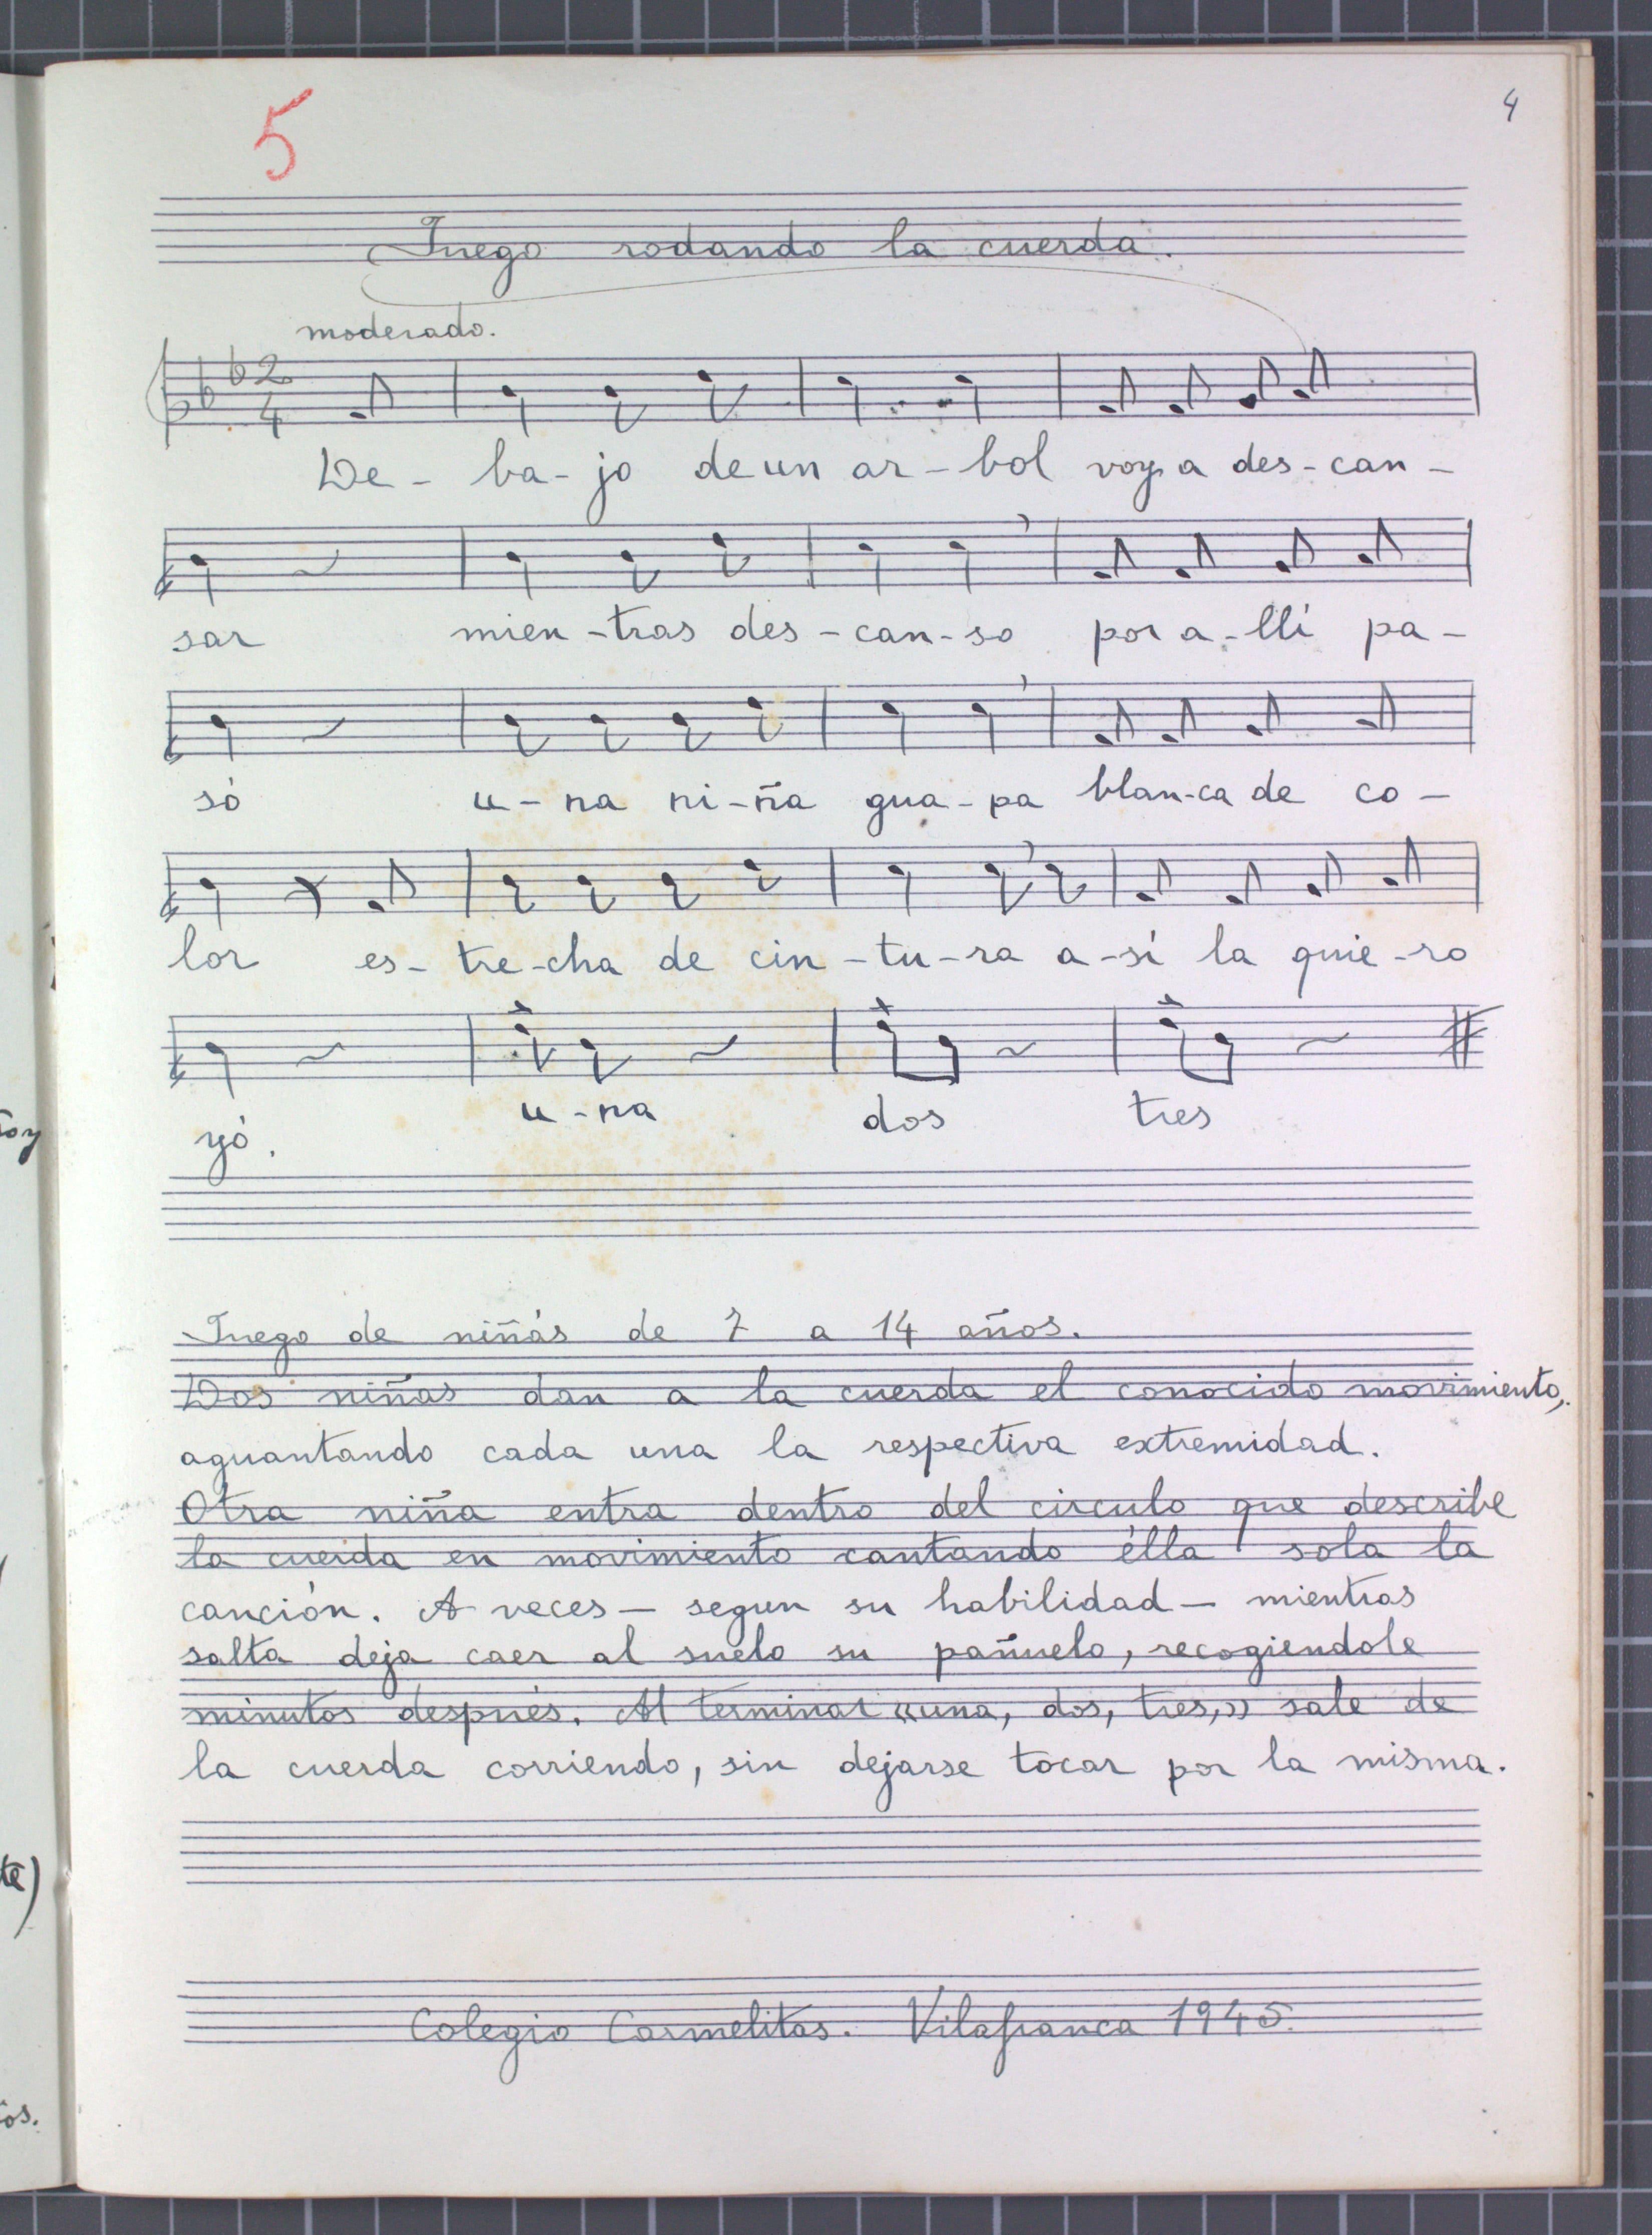 5
4
Juego rodando la cuerda.
moderado.
2
4
De - ba - jo de un ar - bol voy a des - can -
sar mien - tras des - can - so por a - llí pa -
só u - na ni - ña gua - pa blan - ca de co -
lor es - tre - cha de cin - tu - ra a - sí la quie - ro
yó. u - na dos tres
Juego de niñás de 7 a 14 años.
Dos niñas dan a la cuerda el conocido movimiento,
aguantando cada una la respectiva extremidad.
Otra niña entra dentro del circulo que describe
la cuerda en movimiento cantando élla sola la
canción. A veces — segun su habilidad — mientras
salta deja caer al suelo su pañuelo, recogiendole
minutos después. Al terminar «una, dos, tres,» sale de
la cuerda corriendo, sin dejarse tocar por la misma.
Colegio Carmelitas. Vilafranca 1945.